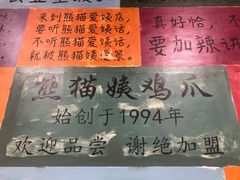 来到熊猫爱姨店,
要听熊猫爱姨话,
不听熊猫爱姨话,
就被熊猫姨
真好恰,
要加辣
熊猫姨鸡爪
始创于1994年
欢迎品尝 谢绝加盟